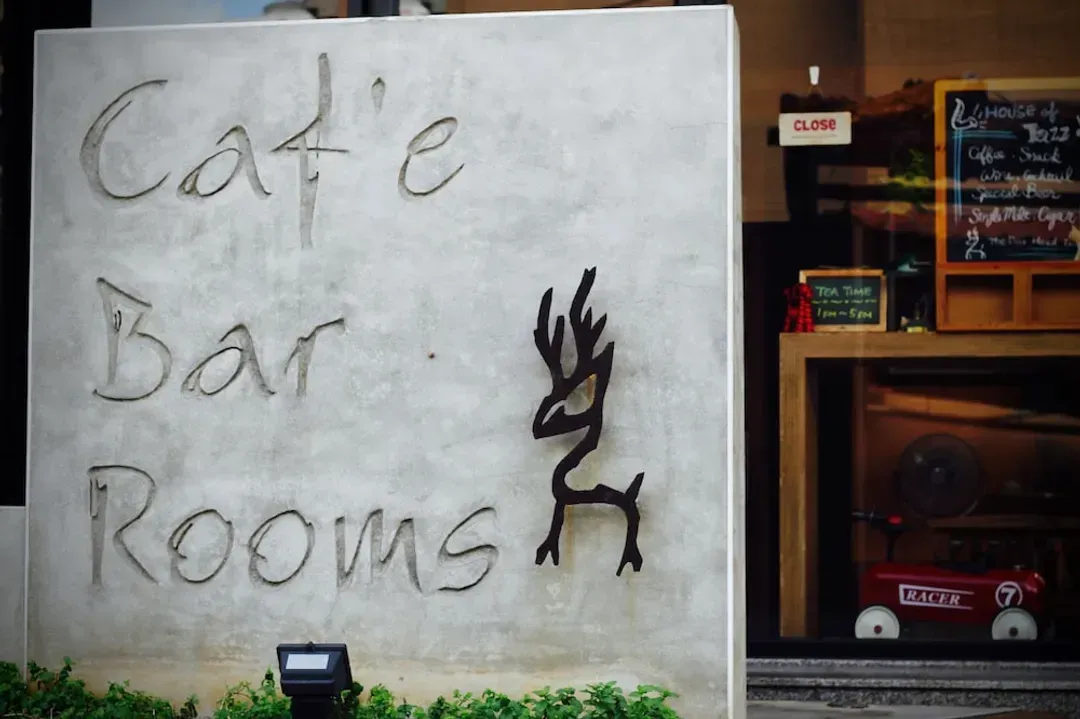 Caf'e
Bar
Rooms
CLOSE
HOUSE of
Jazz
Coffee . Snack
Wine . Cocktail
Special Beer
Single Malt . Cigar
TEA TIME
1 PM ~ 5 PM
RACER 7